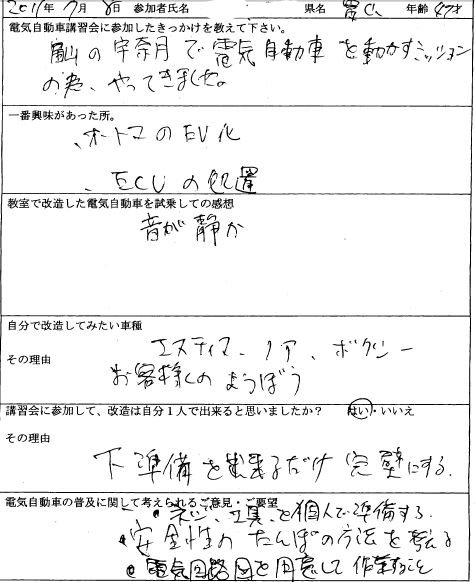 2011年7月8日 参加者氏名 県名 富山 年齢 47才
電気自動車講習会に参加したきっかけを教えて下さい。
富山の宇奈月で電気自動車を動かすミッション
の為、やってきました。
一番興味があった所。
、オートマのEV化
、ECUの処置
教室で改造した電気自動車を試乗しての感想
音が静か
自分で改造してみたい車種
エスティマ、ノア、ボクシー
その理由
お客様のようぼう
講習会に参加して、改造は自分1人で出来ると思いましたか? はい・いいえ
その理由
下準備を出来るだけ完壁にする。
電気自動車の普及に関して考えられるご意見・ご要望
工具を個人で準備する。
・安全性のたんぽの方法を考える
・電気回路図を用意して作業すること